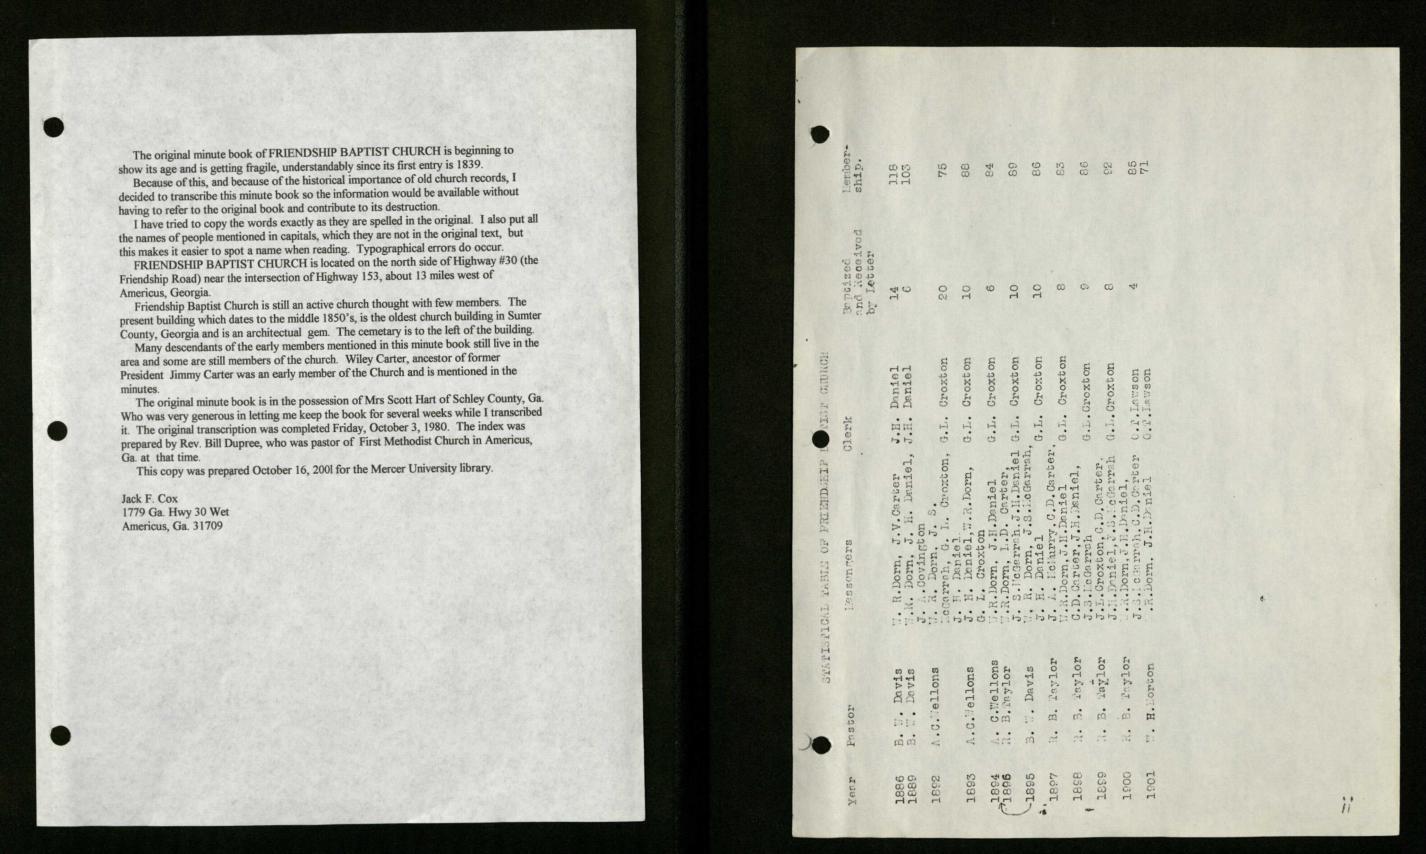 The original minute book of FRIENDSHIP BAPTIST CHURCH is beginning to
show its age and is getting fragile, understandably since its first entry is 1839.
Because of this, and because of the historical importance of old church records, I
decided to transcribe this minute book so the information would be available without
having to refer to the original book and contribute to its destruction.
I have tried to copy the words exactly as they are spelled in the original. I also put all
the names of people mentioned in capitals, which they are not in the original text, but
this makes it easier to spot a name when reading. Typographical errors do occur.
FRIENDSHIP BAPTIST CHURCH is located on the north side of Highway #30 (the
Friendship Road) near the intersection of Highway 153, about 13 miles west of
Americus, Georgia.
Friendship Baptist Church is still an active church thought with few members. The
present building which dates to the middle 1850's, is the oldest church building in Sumter
County, Georgia and is an architectual gem. The cemetary is to the left of the building.
Many descendants of the early members mentioned in this minute book still live in the
area and some are still members of the church. Wiley Carter, ancestor of former
President Jimmy Carter was an early member of the Church and is mentioned in the
minutes.
The original minute book is in the possession of Mrs Scott Hart of Schley County, Ga.
Who was very generous in letting me keep the book for several weeks while I transcribed
it. The original transcription was completed Friday, October 3, 1980. The index was
prepared by Rev. Bill Dupree, who was pastor of First Methodist Church in Americus,
Ga. at that time.
This copy was prepared October 16, 2001 for the Mercer University library.
Jack F. Cox
1779 Ga. Hwy 30 Wet
Americus, Ga. 31709
STATISTICAL TABLE OF FRIENDSHIP BAPTIST CHURCH
Year Pastor Messengers Clerk Baptized and Received by Letter Member-ship.
1886 B. W. Davis W. R.Dorn, J.V.Carter J.H. Daniel 14 118
1889 B. W. Davis W.R. Dorn, J. H. Daniel, J.H. Daniel 6 103
J. A.Covington
1892 A.C.Wellons W. R. Dorn, J. S.
McGarrah, G. L. Croxton, G.L. Croxton 20 75
J. H. Daniel
1893 A.C.Wellons J. H. Daniel,W.R.Dorn, G.L. Croxton 10 88
G. L. Croxton
1894 A. C.Wellons W.R.Dorn, J.H.Daniel G.L. Croxton 6 84
1896 R. B.Taylor W.R.Dorn, C.D. Carter,
J. S.McGarrah,J.H.Daniel G.L. Croxton 10 89
1895 B. W. Davis W. R. Dorn, J.S.McGarrah,
J. H. Daniel G.L. Croxton 10 86
1897 R. B. Taylor J. A. McLurry,C.D.Carter,
W.R.Dorn,J.H.Daniel G.L. Croxton 8 83
1898 R. B. Taylor C.D.Carter,J.H.Daniel,
J.S.McGarrah G.L.Croxton 9 86
1899 R. B. Taylor J.L.Croxton,C.D.Carter,
J.H.Daniel,J.S.McGarrah G.L.Croxton 8 92
1900 R. B. Taylor W.R.Dorn,J.H.Daniel,
J.S.McGarrah,C.D.Carter O.P.Lawson 4 85
1901 W. H.Norton W.R.Dorn, J.H.Daniel O.P.Lawson 71